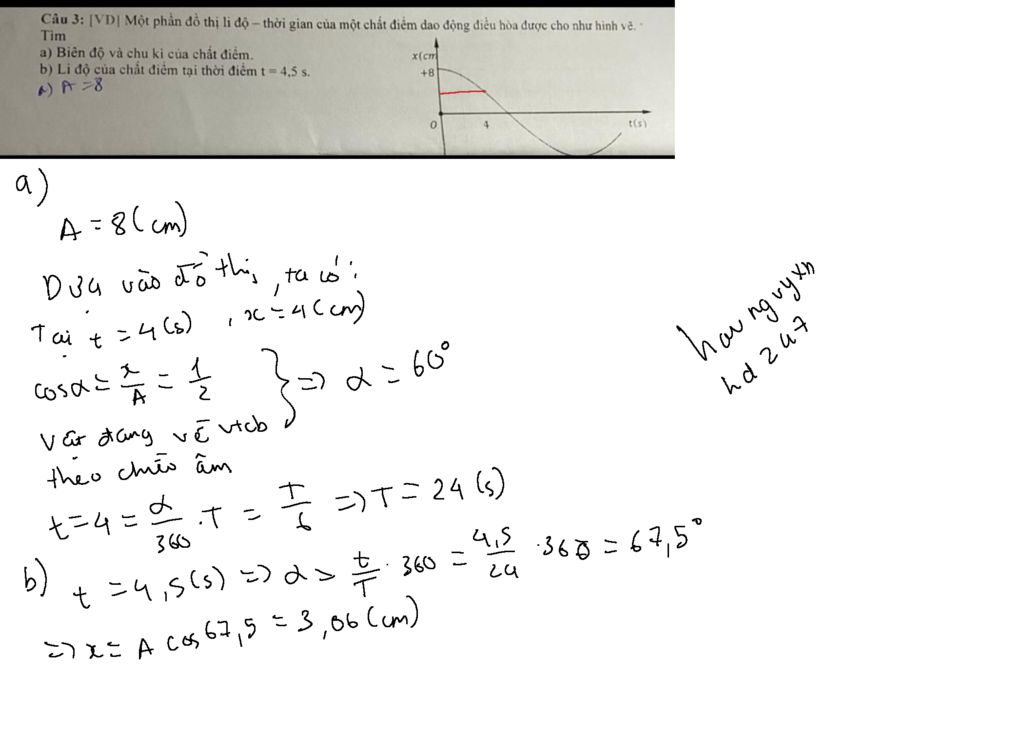 Câu 3: [VD] Một phần đồ thị li độ – thời gian của một chất điểm dao động điều hòa được cho như hình vẽ.
Tìm
a) Biên độ và chu kì của chất điểm.
b) Li độ của chất điểm tại thời điểm t = 4,5 s.
a) A = 8
x(cm
+8
O
4
t(s)
a)
A = 8 (cm)
Dựa vào đồ thị, ta có:
Tại t = 4(s), x = 4(cm)
cosα = x/A = 1/2 } => α = 60°
Vật đang về vtcb
theo chiều âm
t = 4 = α/360 . T = T/6 => T = 24 (s)
b) t = 4,5(s) => α = t/T . 360 = 4,5/24 . 360 = 67,5°
=> x = A cos 67,5 = 3,06 (cm)
hd 247